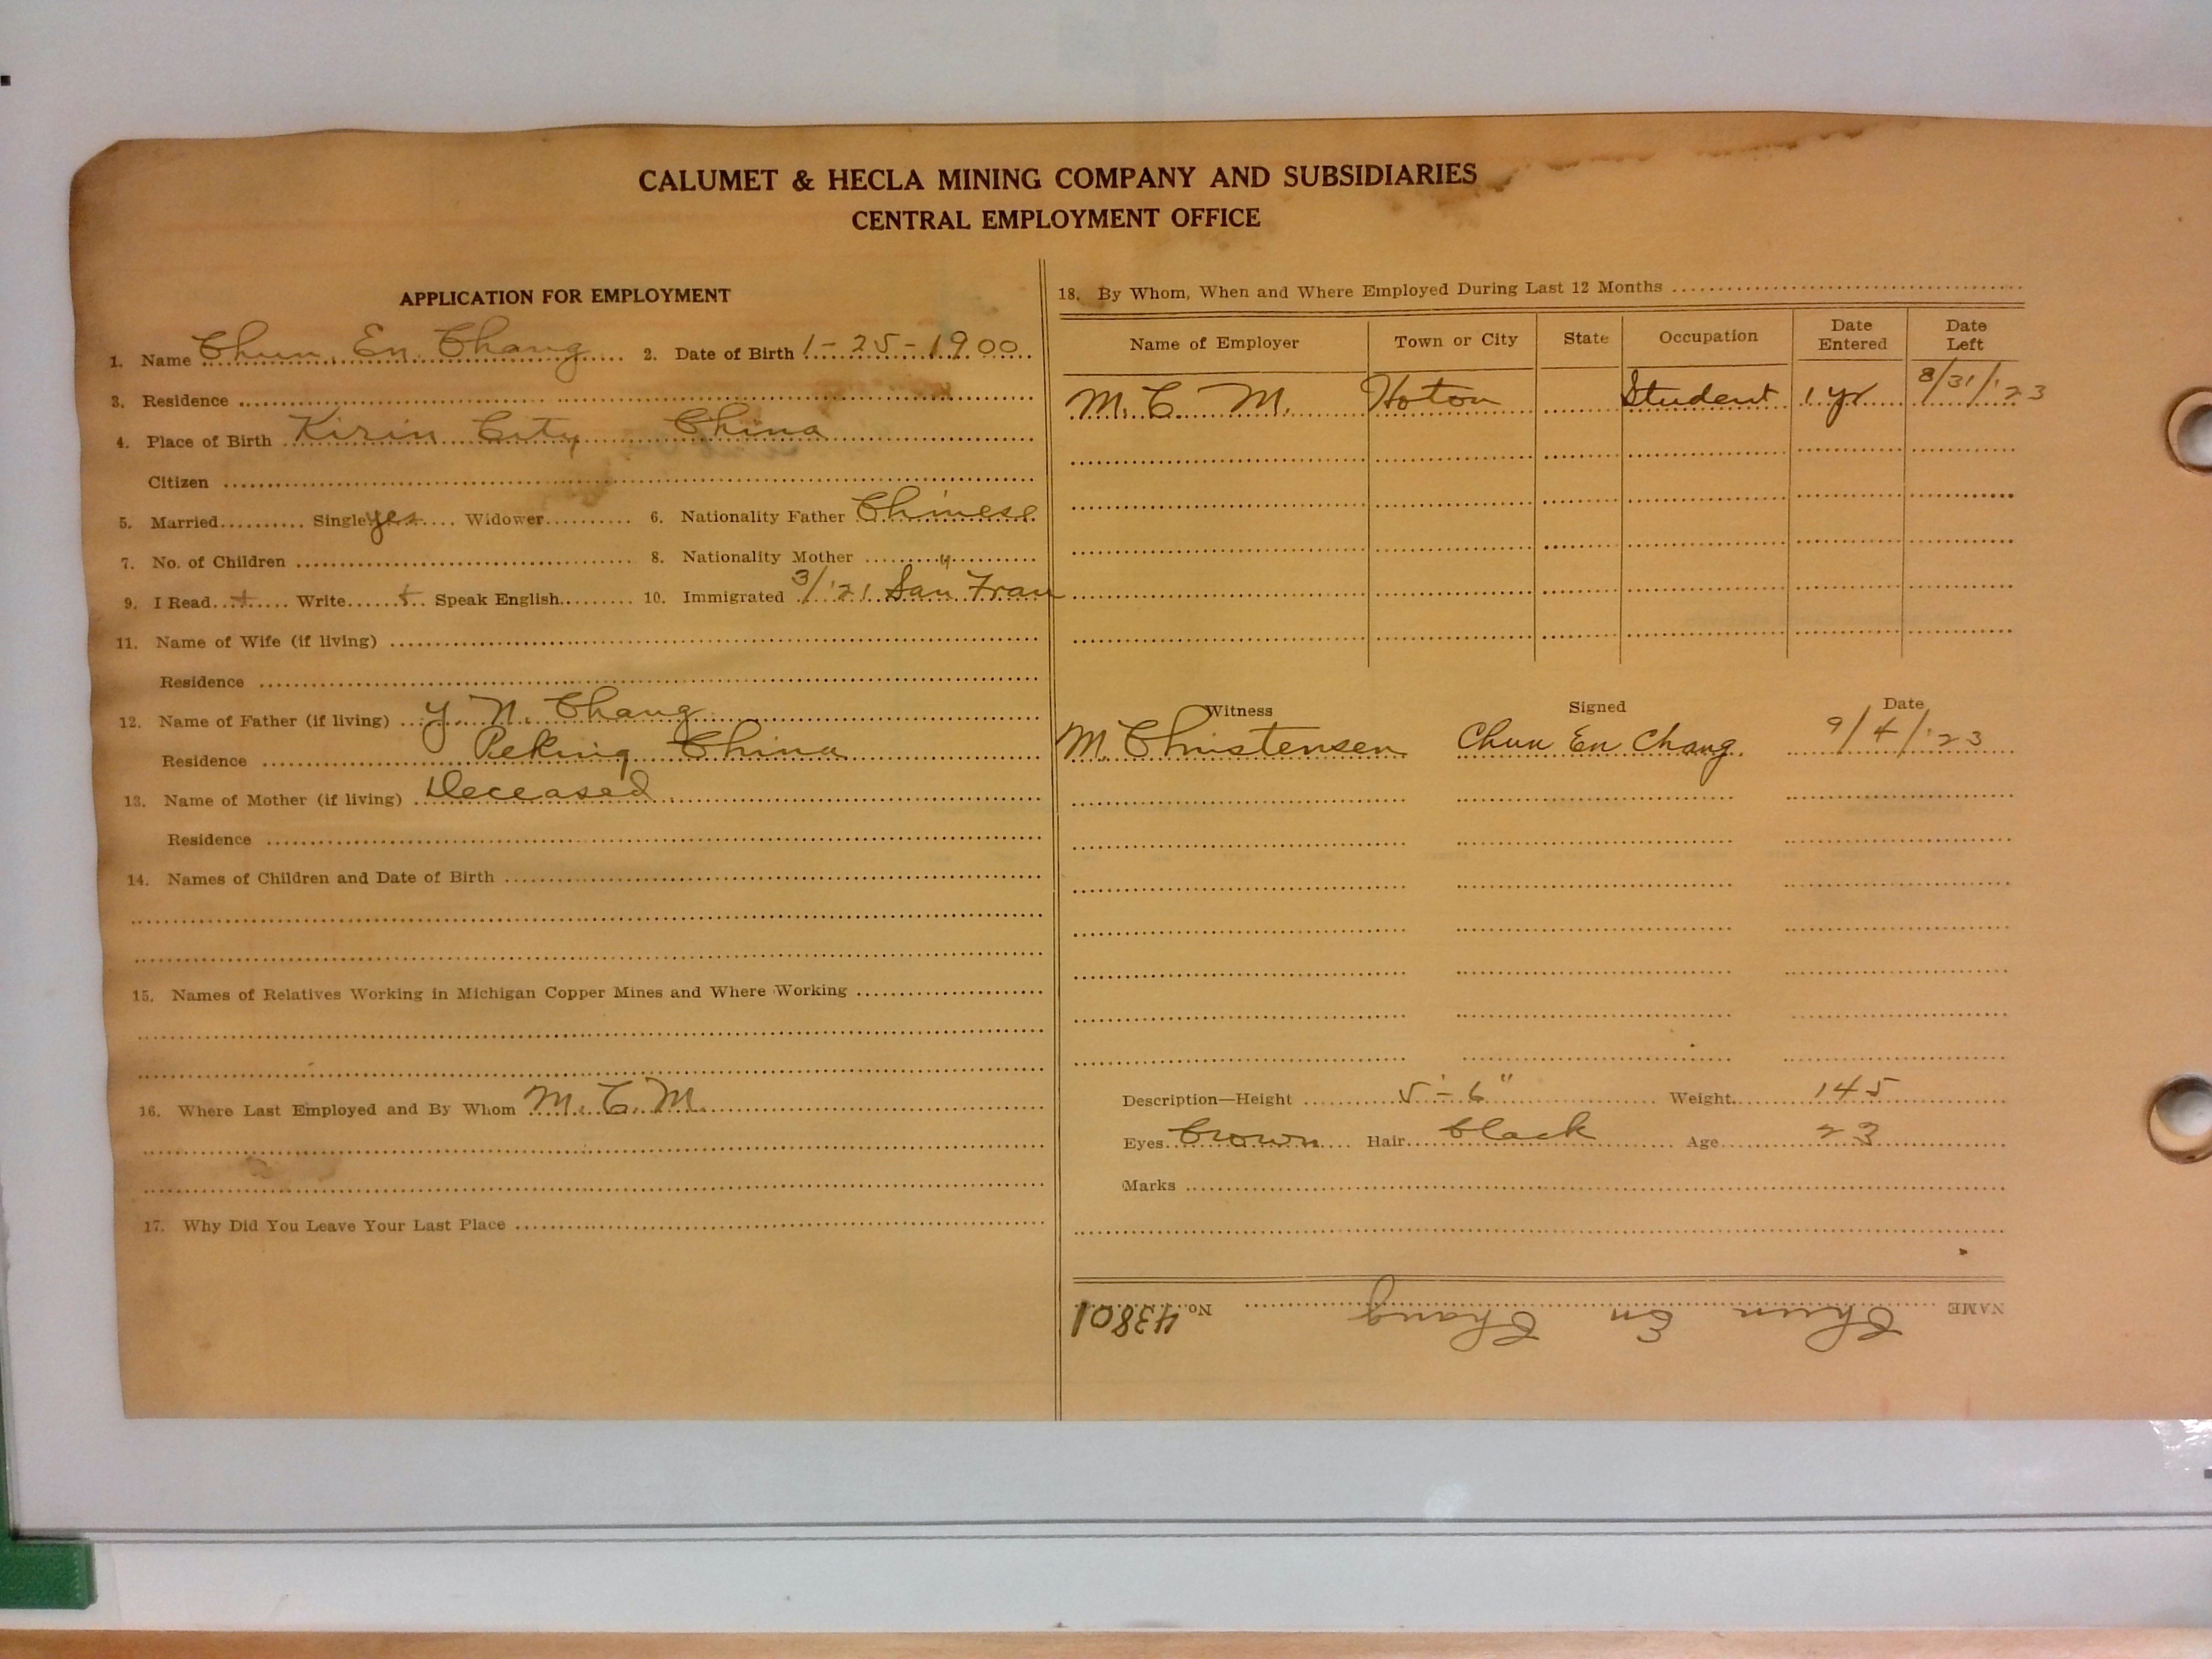 CALUMET & HECLA MINING COMPANY AND SUBSIDIARIES
CENTRAL EMPLOYMENT OFFICE
APPLICATION FOR EMPLOYMENT
1. Name Chun En Chang 2. Date of Birth 1-25-1900
3. Residence
4. Place of Birth Kirin City China
Citizen
5. Married Single yes Widower 6. Nationality Father Chinese
7. No. of Children 8. Nationality Mother "
9. I Read + Write + Speak English 10. Immigrated 3/'21 San Fran
11. Name of Wife (if living)
Residence
12. Name of Father (if living) Y. N. Chang
Residence Peking China
13. Name of Mother (if living) Deceased
Residence
14. Names of Children and Date of Birth
15. Names of Relatives Working in Michigan Copper Mines and Where Working
16. Where Last Employed and By Whom M. C. M.
17. Why Did You Leave Your Last Place
18. By Whom, When and Where Employed During Last 12 Months
Name of Employer Town or City State Occupation Date Entered Date Left
M. C. M. Hoton Student 1 yr 8/31/'23
Witness Signed Date
M. Christensen Chun En Chang. 9/4/'23
Description—Height 5'-6" Weight 145
Eyes brown Hair black Age 23
Marks
NAME Chun En Chang No. 43801